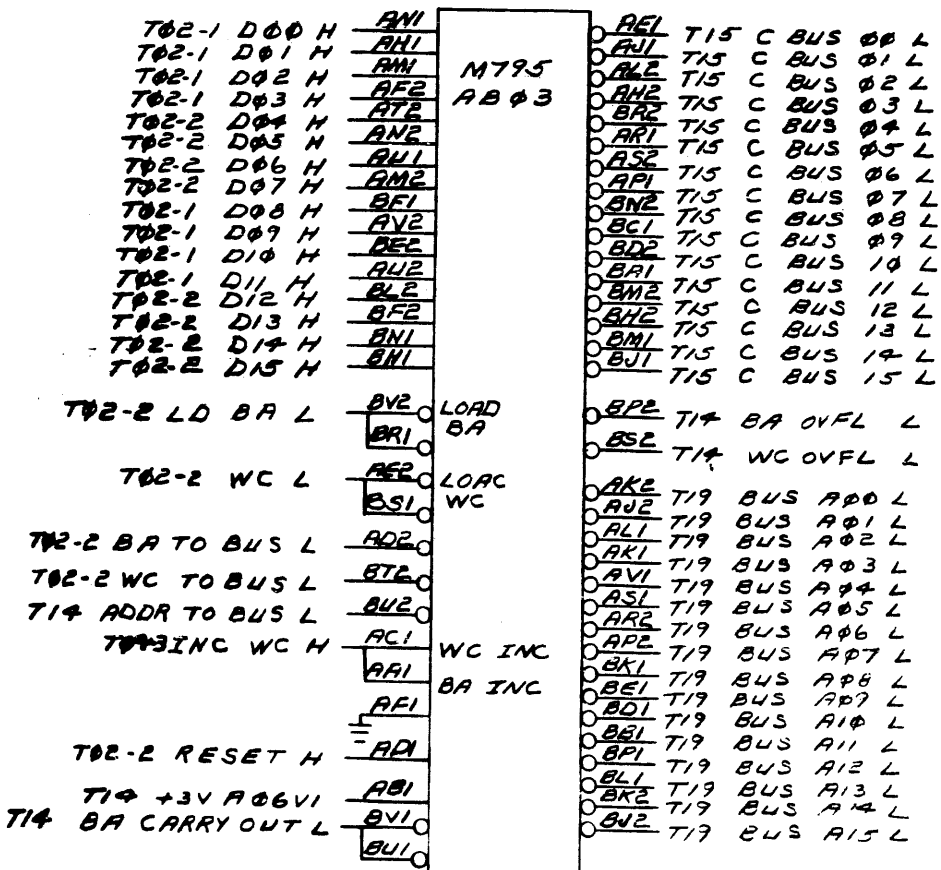 TØ2-1 DØØ H AN1
TØ2-1 DØ1 H AH1
TØ2-1 DØ2 H AM1
TØ2-1 DØ3 H AF2
TØ2-2 DØ4 H AT2
TØ2-2 DØ5 H AN2
TØ2-2 DØ6 H AU1
TØ2-2 DØ7 H AM2
TØ2-1 DØ8 H BF1
TØ2-1 DØ9 H AV2
TØ2-1 D1Ø H BE2
TØ2-1 D11 H AU2
TØ2-2 D12 H BL2
TØ2-2 D13 H BF2
TØ2-2 D14 H BN1
TØ2-2 D15 H BH1
TØ2-2 LD BA L BV2
BR1
TØ2-2 WC L AE2
BS1
TØ2-2 BA TO BUS L AD2
TØ2-2 WC TO BUS L BT2
T14 ADDR TO BUS L BU2
INC WC H AC1
AA1
AF1
TØ2-2 RESET H AD1
T14 +3V AØ6V1 AB1
T14 BA CARRY OUT L BV1
BU1
M795
ABØ3
LOAD
BA
LOAC
WC
WC INC
BA INC
AE1 T15 C BUS ØØ L
AJ1 T15 C BUS Ø1 L
AL2 T15 C BUS Ø2 L
AH2 T15 C BUS Ø3 L
BR2 T15 C BUS Ø4 L
AR1 T15 C BUS Ø5 L
AS2 T15 C BUS Ø6 L
AP1 T15 C BUS Ø7 L
BN2 T15 C BUS Ø8 L
BC1 T15 C BUS Ø9 L
BD2 T15 C BUS 1Ø L
BA1 T15 C BUS 11 L
BM2 T15 C BUS 12 L
BH2 T15 C BUS 13 L
BM1 T15 C BUS 14 L
BJ1 T15 C BUS 15 L
BP2 T14 BA OVFL L
BS2 T14 WC OVFL L
AK2 T19 BUS AØØ L
AJ2 T19 BUS AØ1 L
AL1 T19 BUS AØ2 L
AK1 T19 BUS AØ3 L
AV1 T19 BUS AØ4 L
AS1 T19 BUS AØ5 L
AR2 T19 BUS AØ6 L
AP2 T19 BUS AØ7 L
BK1 T19 BUS AØ8 L
BE1 T19 BUS AØ9 L
BD1 T19 BUS A1Ø L
BB1 T19 BUS A11 L
BP1 T19 BUS A12 L
BL1 T19 BUS A13 L
BK2 T19 BUS A14 L
BJ2 T19 BUS A15 L